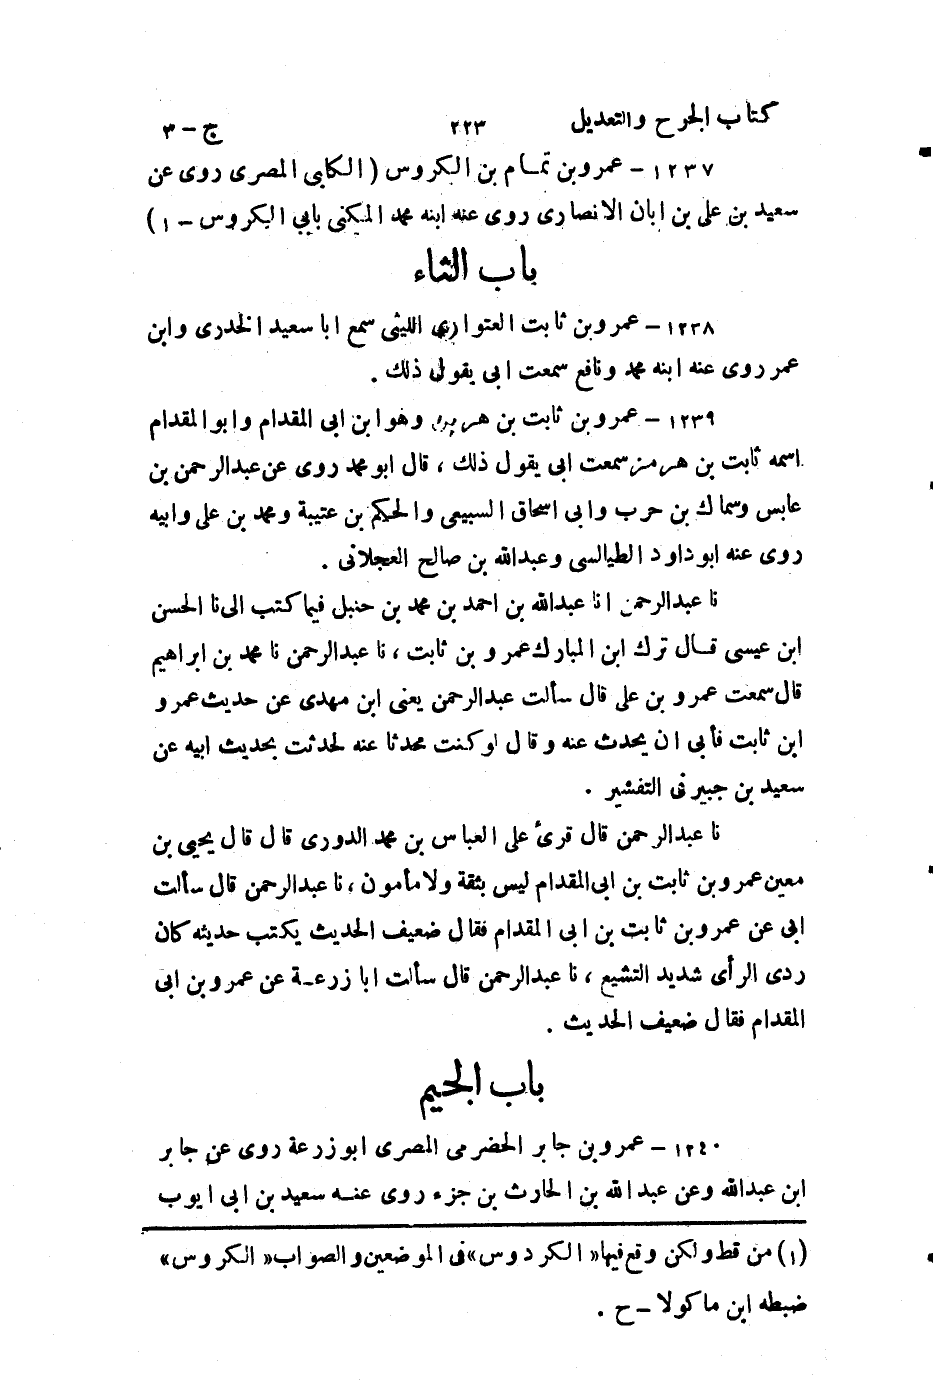 كتاب الجرح والتعديل ٢٢٣ ج - ٣
١٢٣٧ - عمرو بن تمام بن الكروس (الكلبى المصرى روى عن
سعيد بن على بن ابان الانصارى روى عنه ابنه محمد المكنى بابي الكروس - ١)
باب الثاء
١٢٣٨ - عمرو بن ثابت العتوارى الليثى سمع ابا سعيد الخدرى وابن
عمر روى عنه ابنه محمد ونافع سمعت ابى يقول ذلك .
١٢٣٩ - عمرو بن ثابت بن هرمز وهو ابن ابى المقدام وابو المقدام
اسمه ثابت بن هرمز سمعت ابى يقول ذلك ، قال ابو محمد روى عن عبدالرحمن بن
عابس وسماك بن حرب وابى اسحاق السبيعى والحكم بن عتيبة ومحمد بن على وابيه
روى عنه ابو داود الطيالسى وعبدالله بن صالح العجلانى .
نا عبدالرحمن انا عبدالله بن احمد بن محمد بن حنبل فيما كتب الى نا الحسن
ابن عيسى قال ترك ابن المبارك عمرو بن ثابت ، نا عبدالرحمن نا محمد بن ابراهيم
قال سمعت عمرو بن على قال سألت عبدالرحمن يعنى ابن مهدى عن حديث عمرو
ابن ثابت فأبى ان يحدث عنه وقال لوكنت محدثا عنه لحدثت بحديث ابيه عن
سعيد بن جبير فى التفسير .
نا عبدالرحمن قال قرئ على العباس بن محمد الدورى قال قال يحيى بن
معين عمرو بن ثابت بن ابى المقدام ليس بثقة ولا مأمون ، نا عبدالرحمن قال سألت
ابى عن عمرو بن ثابت بن ابى المقدام فقال ضعيف الحديث يكتب حديثه كان
ردى الرأى شديد التشيع ، نا عبدالرحمن قال سألت ابا زرعة عن عمرو بن ابى
المقدام فقال ضعيف الحديث .
باب الجيم
١٢٤٠ - عمرو بن جابر الحضرمى المصرى ابو زرعة روى عن جابر
ابن عبدالله وعن عبد الله بن الحارث بن جزء روى عنه سعيد بن ابى ايوب
(١) من قط ولكن وقع فيها « الكردوس » فى الموضعين والصواب « الكروس »
ضبطه ابن ماكولا - ح .